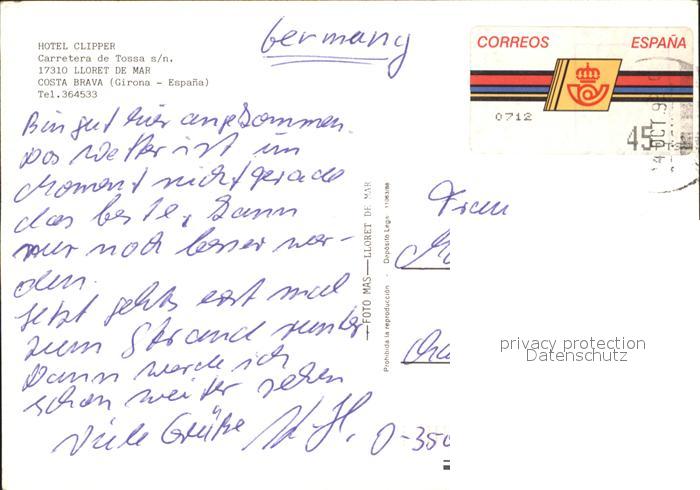 HOTEL CLIPPER
Carretera de Tossa s/n.
17310 LLORET DE MAR
COSTA BRAVA (Girona - España)
Tel.364533
Germany
CORREOS ESPAÑA
0712
45 PTS
14 OCT 9
Bin gut hier angekommen.
Das Wetter ist im
Moment nicht gerade
das beste, kann
nur noch besser wer-
den.
Jetzt gehts erst mal
zum Strand runter
Dann werde ich
schon weiter sehen
Viele Grüße
FOTO MAS — LLORET DE MAR
Prohibida la reproducción - Depósito Legal
Frau
D-350
privacy protection
Datenschutz